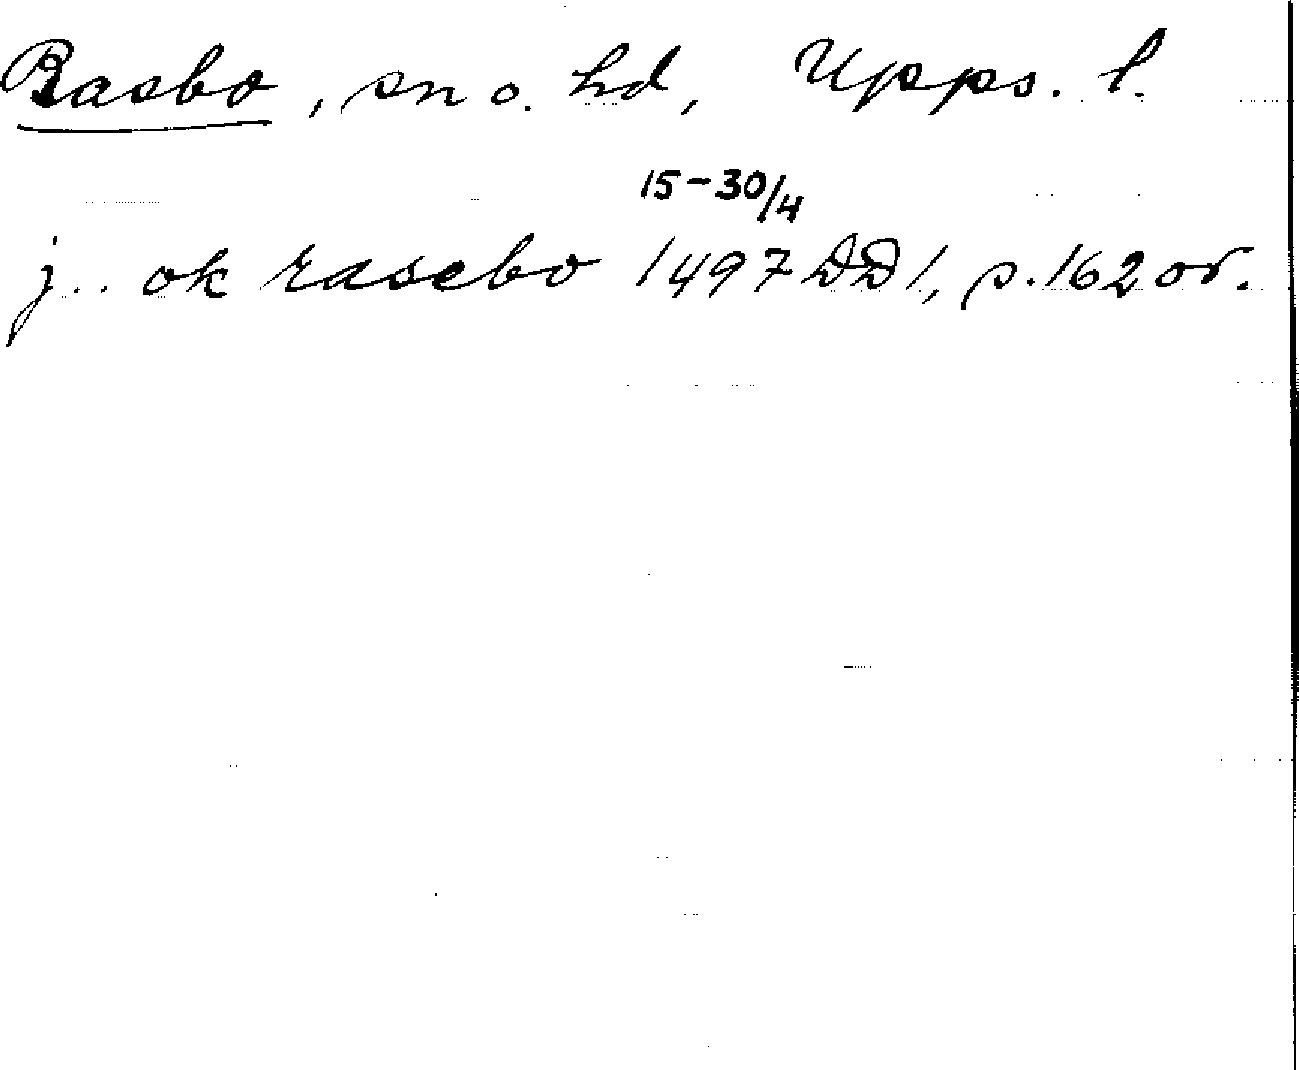 Rasbo, sn o. hd, Upps. l.
15-30/4
j.. ok rasebo 1497 DD 1, s. 162 or.